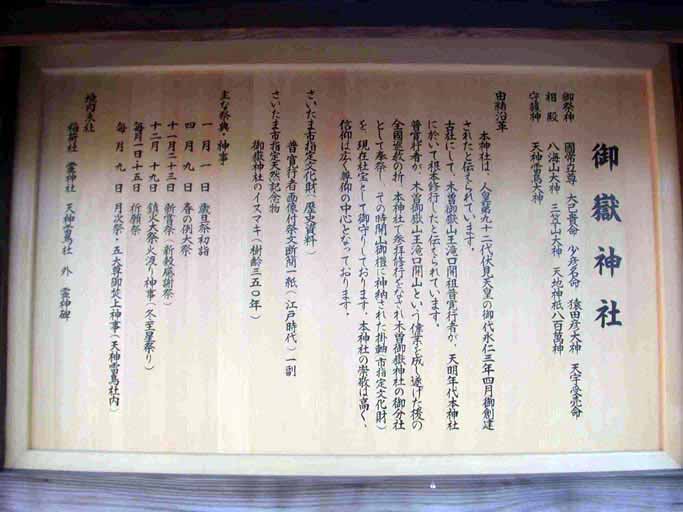 御嶽神社
御祭神　国常立尊　大己貴命　少彦名命　猿田彦大神　天宇受売命
相殿　八海山大神　三笠山大神　天地神祇八百萬神
守護神　天神雷鳥大神
由緒沿革
本神社は、人皇第九十二代伏見天皇の御代永仁三年四月御創建
されたと伝られています。
古社にして、木曽御嶽山王滝口開祖普寛行者が、天明年代本神社
に於いて根本修行したと伝えられています。
普寛行者が、木曽御嶽山王滝口開山という偉業を成し遂げた後の
全国巡教の折、本神社で参拝修行をなされ木曽御嶽神社の御分社
として奉祭し、その時開山御礼に神納された掛軸(市指定文化財)
を、現在社宝として御守りしております。本神社の崇敬は高く、
信仰は広く尊仰の中心となっております。
さいたま市指定文化財(歴史資料)
普寛行者画像付祭文断簡一紙(江戸時代)一副
さいたま市指定天然記念物
御嶽神社のイヌマキ(樹齢三五〇年)
主な祭典・神事
一月一日　歳旦祭初詣
四月九日　春の例大祭
十一月二十三日　新嘗祭(新穀感謝祭)
十二月十九日　鎮火大祭(火渡り神事・冬至星祭り)
毎月一日十五日　祈願祭
毎月九日　月次祭・五大尊御焚上神事(天神雷鳥社内)
境内末社
稲荷社　霊神社　天神雷鳥社　外　霊神碑